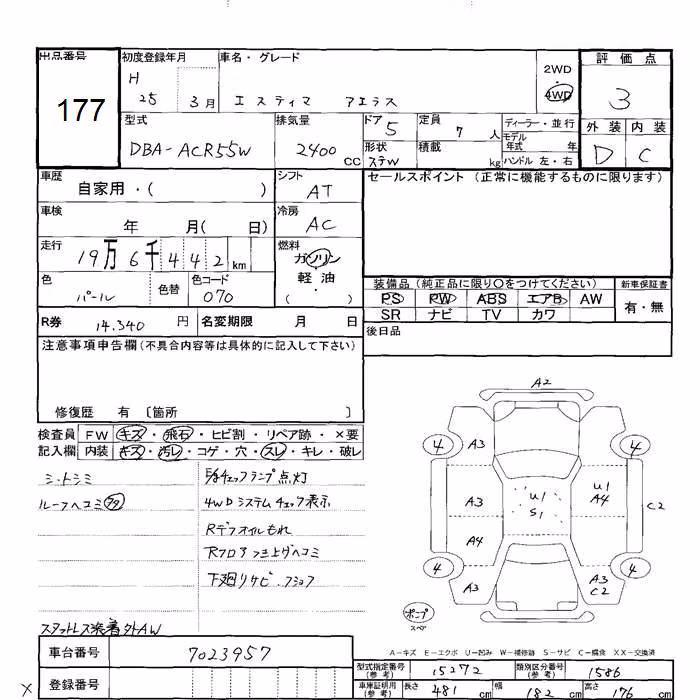 出品番号 初度登録年月 車名・グレード 評価点
177
H 25 3月 エスティマ アエラス 2WD 4WD 3
型式 排気量 ドア 5 定員 7人 ディーラー・並行 外装 内装
DBA-ACR55W 2400cc 形状 ステW 積載 kg モデル年式 年 D C
ハンドル 左・右
車歴 自家用・( ) シフト AT セールスポイント (正常に機能するものに限ります)
車検 年 月( 日) 冷房 AC
走行 19万6千442km 燃料 ガソリン
軽油
( )
色 パール 色替 色コード 070
装備品 (純正品に限り○をつけてください) 新車保証書
PS PW ABS エアB AW 有・無
SR ナビ TV カワ
R券 14.340円 名変期限 月 日 後日品
注意事項申告欄(不具合内容等は具体的に記入して下さい)
修復歴 有 〔箇所 〕
検査員 FW キズ・飛石・ヒビ割・リペア跡・×要
記入欄 内装 キズ・汚レ・コゲ・穴・スレ・キレ・破レ
ミ・トシミ
ルーフヘコミ
チェックランプ点灯
4WDシステムチェック表示
Rデフオイルもれ
下廻りサビ・
スタットレス装着外AW
A2
4 A3 4
A3 U1 S1 U1 A4 C2
A4
4 4
A3 A3 C2
ポンプ
スペア
A-キズ E-エクボ U-凹み W-補修跡 S-サビ C-腐食 XX-交換済
車台番号 7023957
型式指定番号(参考) 15272 類別区分番号(参考) 1586
登録番号
車庫証明用(参考) 長さ 481cm 幅 182cm 高さ 176cm
X